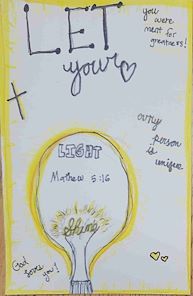 LET
your
you
were
ment for
greatness!
LIGHT
Mathew 5:16
shine
every
person
is
unique
God
loves you!